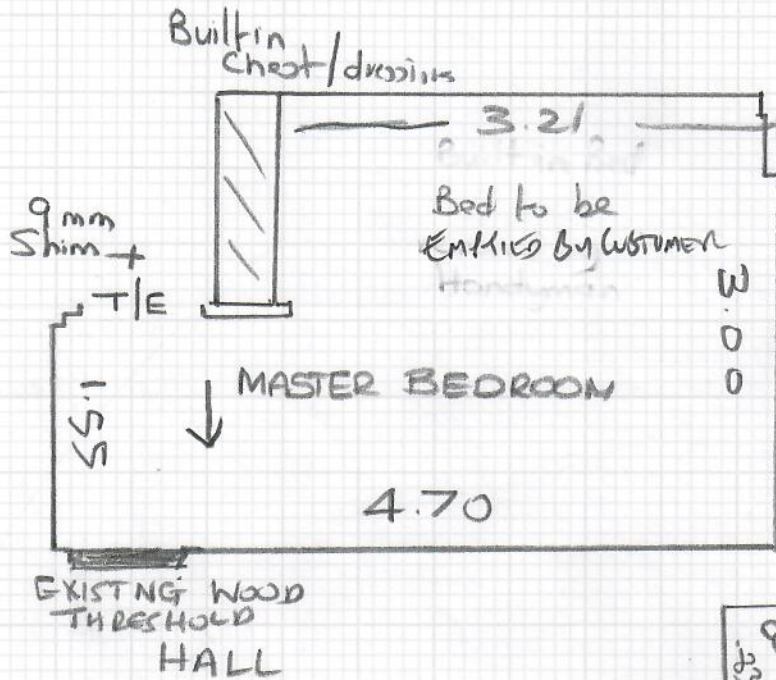 Builtin
Chest/dressing
3.21
Bed to be
EMPTIED BY CUSTOMER
9mm
Shim +
T/E
W.00
1.55
MASTER BEDROOM
4.70
EXISTNG WOOD
THRESHOLD
HALL